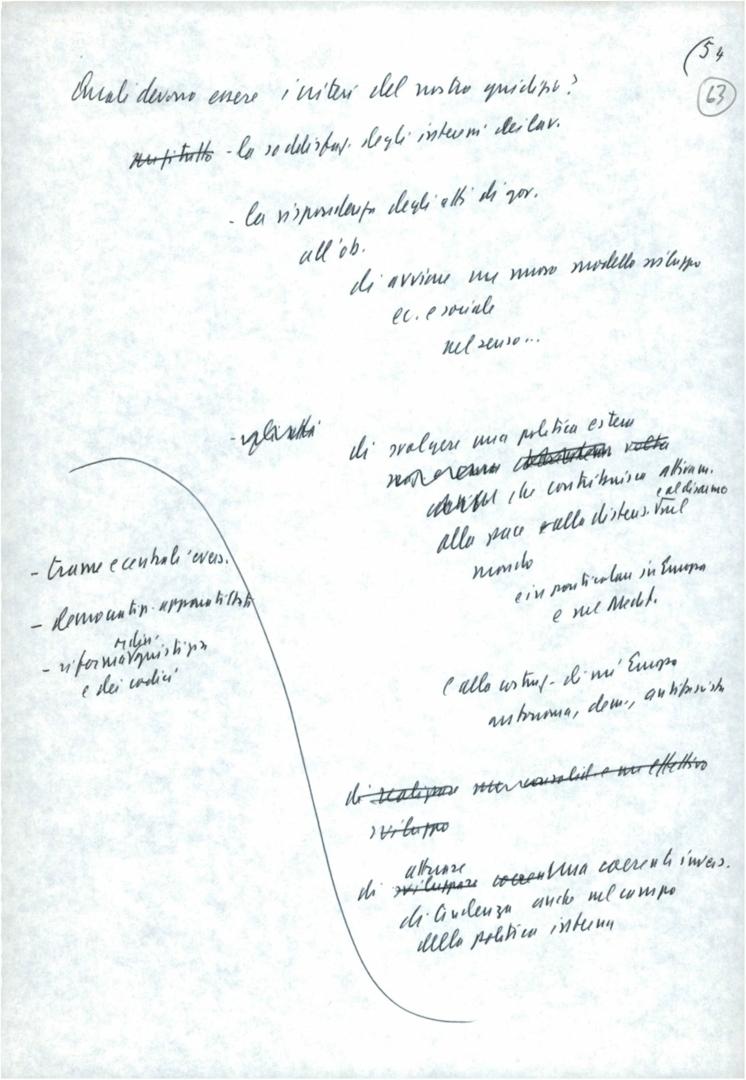 (54
63
Quali devono essere i criteri del nostro giudizio?
anzitutto - la soddisfaz. degli interessi dei lav.
- la rispondenza degli atti di gov.
all'ob.
di avviare un nuovo modello sviluppo
ec. e sociale
nel senso...
di svolgere una politica estera
volta
che contribuisca attivam.
alla pace e alla distens. e al disarmo nel
mondo
e in particolare in Europa
e nel Medit.
e alla costruz. di un'Europa
autonoma, dem., antifascista
di realizzare un consolid. e un effettivo
sviluppo
di sviluppare attuare una coerente invers.
di tendenza anche nel campo
della politica interna
- trame e centrali evers.
- democratizz. apparati Stato
- riforma ordin. giustizia
e dei codici